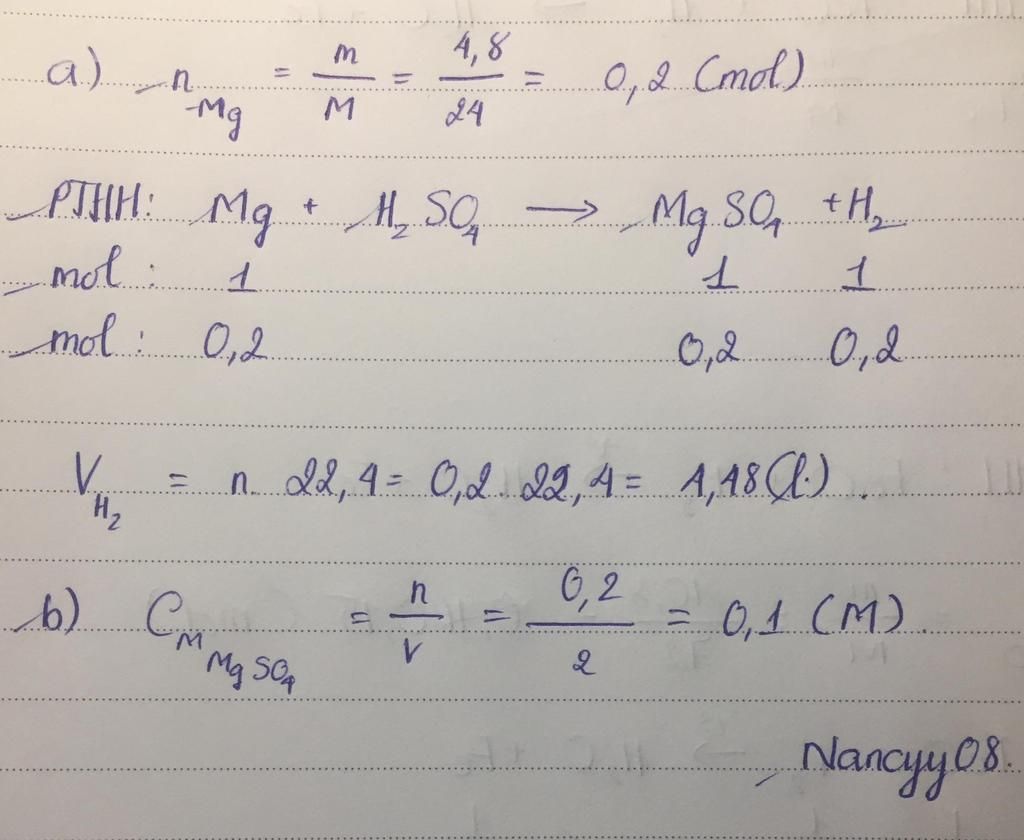 a) n Mg = m/M = 4,8/24 = 0,2 (mol)
PTHH: Mg + H₂SO₄ → MgSO₄ + H₂
mol : 1 1 1
mol : 0,2 0,2 0,2
V H₂ = n. 22,4 = 0,2. 22,4 = 4,48 (l.).
b) C M MgSO₄ = n/V = 0,2/2 = 0,1 (M).
Nancyy08.